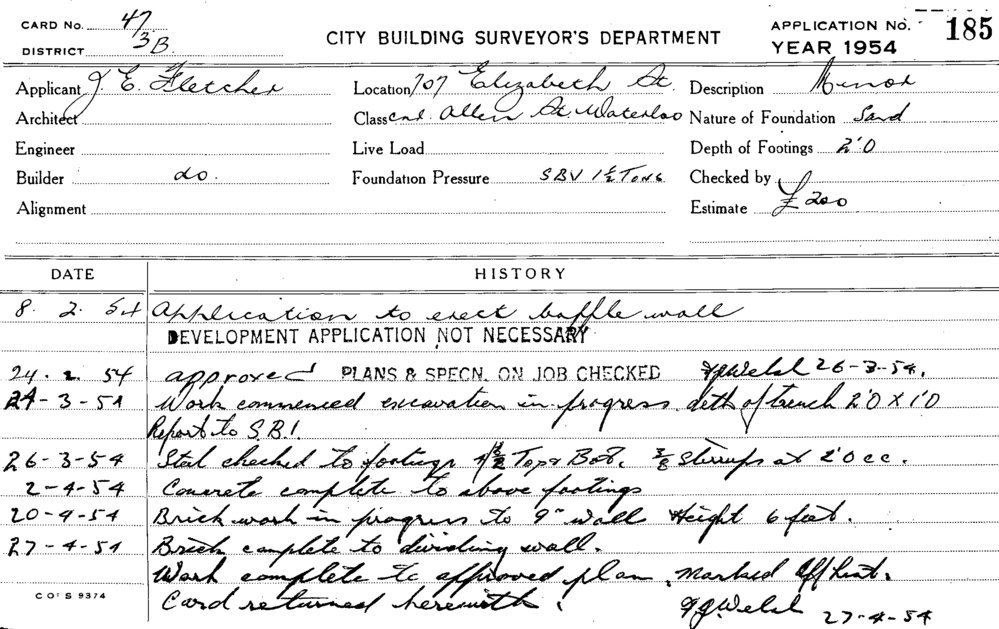 CARD No. 47
DISTRICT 3B
CITY BUILDING SURVEYOR'S DEPARTMENT
APPLICATION No. 185
YEAR 1954
Applicant J. E. Fletcher
Location 707 Elizabeth St.
Description Minor
Architect
Class cnr. Allen St. Waterloo
Nature of Foundation Sand
Engineer
Live Load
Depth of Footings 2'0
Builder do.
Foundation Pressure SBV 1½ Tons
Checked by
Alignment
Estimate £200
DATE HISTORY
8. 2. 54 Application to erect baffle wall
DEVELOPMENT APPLICATION NOT NECESSARY
24. 2. 54 approved PLANS & SPECN. ON JOB CHECKED Welsh 26-3-54.
24-3-54 Work commenced excavation in progress. deth of trench 2'0 x 1'0
Report to S.B.I.
26-3-54 Steel checked to footings Top & Bot. ⅜ stirrups at 2'0 cc.
2-4-54 Concrete complete to above footings
20-4-54 Brick work in progress to 9" wall Height 6 feet.
27-4-54 Brick complete to dividing wall.
Work complete to approved plan. Marked Off list.
Card returned herewith. Welsh 27-4-54
C OF S 9374